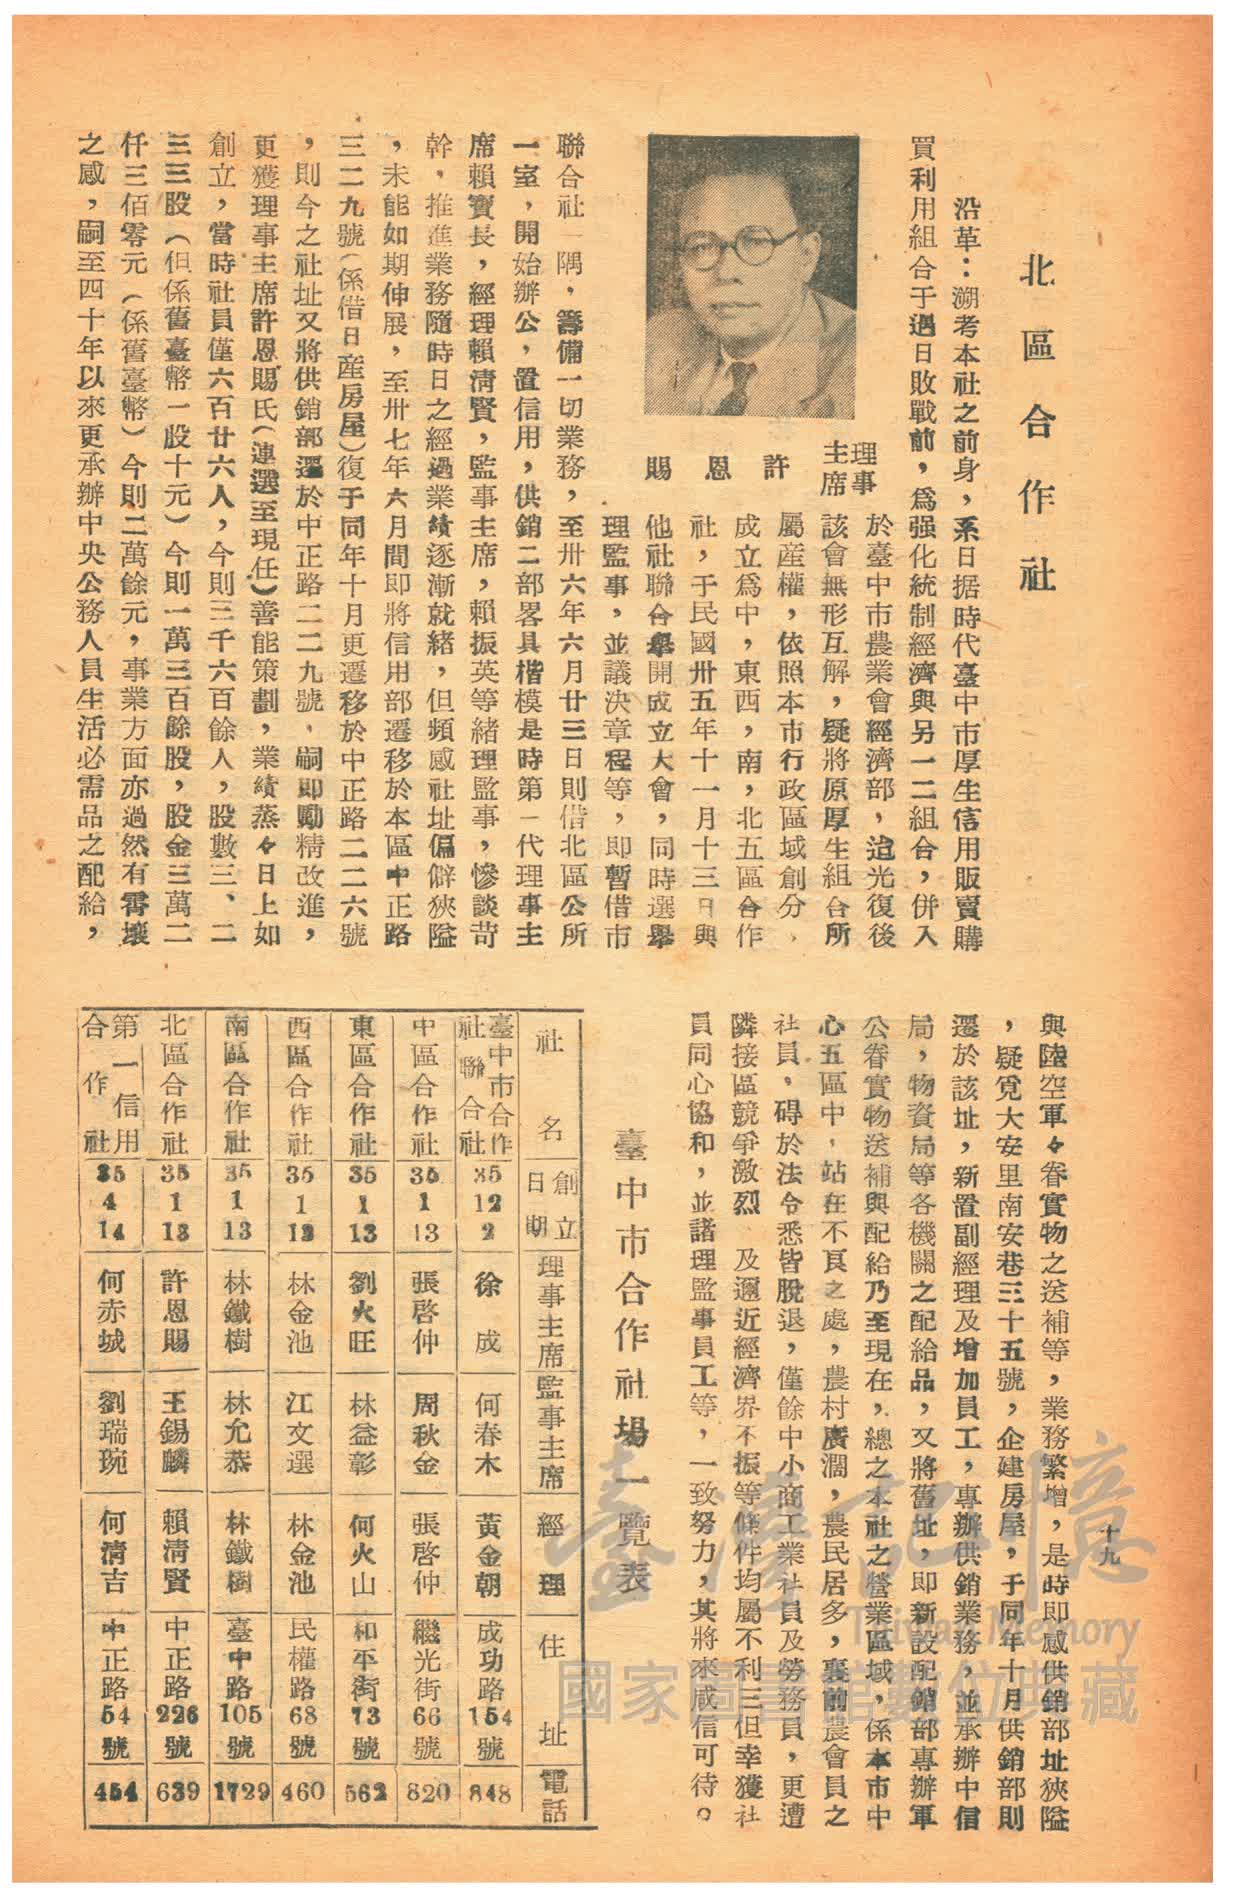 北區合作社
沿革：溯考本社之前身，系日据時代臺中市厚生信用販賣購
買利用組合于過日敗戰前，爲强化統制經濟與另一二組合，併入
理事
主席
許恩賜
於臺中市農業會經濟部，迨光復後
該會無形互解，疑將原厚生組合所
屬産權，依照本市行政區域創分，
成立爲中，東西，南，北五區合作
社，于民國卅五年十一月十三日與
他社聯合舉開成立大會，同時選舉
理監事，並議決章程等，即暫借市
聯合社一隅，籌備一切業務，至卅六年六月廿三日則借北區公所
一室，開始辦公，置信用，供銷二部畧具楷模是時第一代理事主
席賴寶長，經理賴淸賢，監事主席，賴振英等緒理監事，慘談苛
幹，推進業務隨時日之經過業績逐漸就緒，但頻感社址偏僻狹隘
，未能如期伸展，至卅七年六月間即將信用部遷移於本區中正路
三二九號（係借日産房屋）復于同年十月更遷移於中正路二二六號
，則今之社址又將供銷部遷於中正路二二九號，嗣即勵精改進，
更獲理事主席許恩賜氏（連選至現任）善能策劃，業績蒸々日上如
創立，當時社員僅六百廿六人，今則三千六百餘人，股數三、二
三三股（但係舊臺幣一股十元）今則一萬三百餘股，股金三萬二
仟三佰零元（係舊臺幣）今則二萬餘元，事業方面亦過然有霄壤
之感，嗣至四十年以來更承辦中央公務人員生活必需品之配給，
與陸空軍々眷實物之送補等，業務繁增，是時即感供銷部址狹隘
，疑覓大安里南安巷三十五號，企建房屋，于同年十月供銷部則
遷於該址，新置副經理及增加員工，專辦供銷業務，並承辦中信
局，物資局等各機關之配給品，又將舊址，即新設配銷部專辦軍
公眷實物送補與配給乃至現在，總之本社之營業區域，係本市中
心五區中，站在不頁之處，農村廣濶，農民居多，裏前農會員之
社員，碍於法令悉皆脫退，僅餘中小商工業社員及勞務員，更遭
隣接區競爭激烈　及邇近經濟界不振等條件均屬不利三但幸獲社
員同心協和，並諸理監事員工等，一致努力，其將來咸信可待。
十九
臺中市合作社場一覽表
社名　創立日期　理事主席　監事主席　經理　住址　電話
臺中市合作社聯合社　35 12 2　徐成　何春木　黃金朝　成功路154號　848
中區合作社　35 1 13　張啓仲　周秋金　張啓仲　繼光街66號　820
東區合作社　35 1 13　劉火旺　林益彰　何火山　和平街73號　562
西區合作社　35 1 13　林金池　江文選　林金池　民權路68號　460
南區合作社　35 1 13　林鐵樹　林允恭　林鐵樹　臺中路105號　1729
北區合作社　35 1 13　許恩賜　王錫麟　賴淸賢　中正路226號　639
第一信用合作社　35 4 14　何赤城　劉瑞琬　何淸吉　中正路54號　454
臺灣記憶
Taiwan Memory
國家圖書館數位典藏